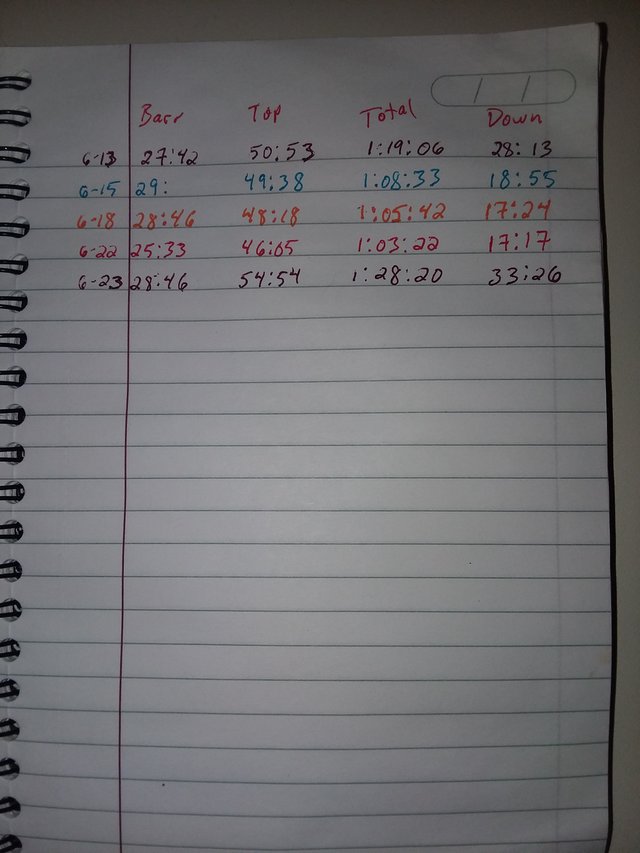 Barr Top Total Down
6-13 27:42 50:53 1:19:06 28:13
6-15 29: 49:38 1:08:33 18:55
6-18 28:46 48:18 1:05:42 17:24
6-22 25:33 46:05 1:03:22 17:17
6-23 28:46 54:54 1:28:20 33:26